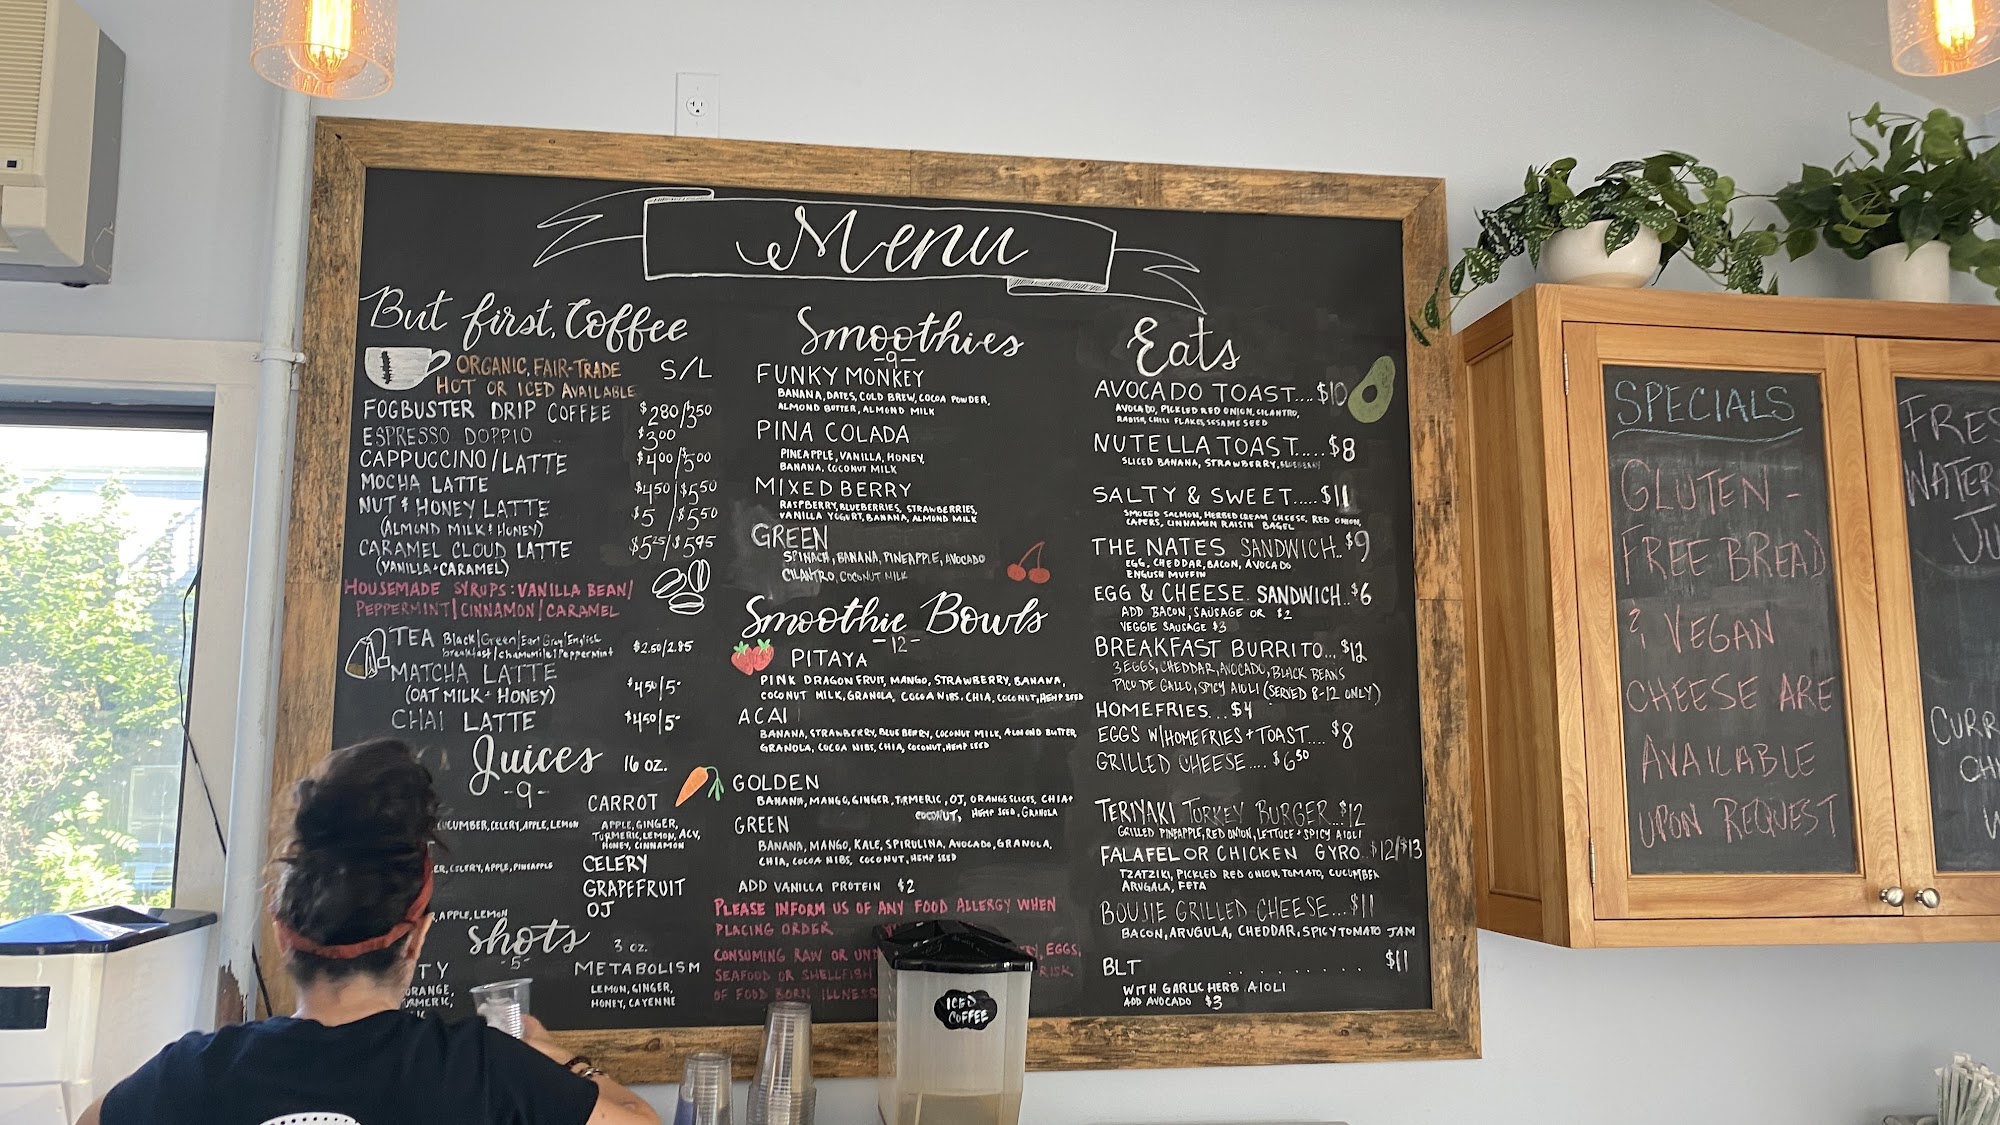 Menu
But first, Coffee
ORGANIC, FAIR-TRADE
HOT OR ICED AVAILABLE
S/L
FOGBUSTER DRIP COFFEE $2.80/3.50
ESPRESSO DOPPIO $3.00
CAPPUCCINO/LATTE $4.00/$5.00
MOCHA LATTE $4.50/$5.50
NUT & HONEY LATTE $5/$5.50
(ALMOND MILK + HONEY)
CARAMEL CLOUD LATTE $5.25/$5.95
(VANILLA + CARAMEL)
HOUSEMADE SYRUPS: VANILLA BEAN/
PEPPERMINT/CINNAMON/CARAMEL
TEA Black/Green/Earl Grey/English
breakfast/chamomile/Peppermint $2.50/2.85
MATCHA LATTE
(OAT MILK + HONEY) $4.50/5-
CHAI LATTE $4.50/5-
Juices 16 oz.
-9-
CUCUMBER, CELERY, APPLE, LEMON
CELERY, APPLE, PINEAPPLE
APPLE, LEMON
CARROT
APPLE, GINGER,
TURMERIC, LEMON, ACV,
HONEY, CINNAMON
CELERY
GRAPEFRUIT
OJ
Shots 3 oz.
-5-
TY
ORANGE,
METABOLISM
LEMON, GINGER,
HONEY, CAYENNE
Smoothies
-9-
FUNKY MONKEY
BANANA, DATES, COLD BREW, COCOA POWDER,
ALMOND BUTTER, ALMOND MILK
PINA COLADA
PINEAPPLE, VANILLA, HONEY,
BANANA, COCONUT MILK
MIXED BERRY
RASPBERRY, BLUEBERRIES, STRAWBERRIES,
VANILLA YOGURT, BANANA, ALMOND MILK
GREEN
SPINACH, BANANA, PINEAPPLE, AVOCADO
CILANTRO, COCONUT MILK
Smoothie Bowls
-12-
PITAYA
PINK DRAGON FRUIT, MANGO, STRAWBERRY, BANANA,
COCONUT MILK, GRANOLA, COCOA NIBS, CHIA, COCONUT, HEMP SEED
ACAI
BANANA, STRAWBERRY, BLUEBERRY, COCONUT MILK, ALMOND BUTTER,
GRANOLA, COCOA NIBS, CHIA, COCONUT, HEMP SEED
GOLDEN
BANANA, MANGO, GINGER, TURMERIC, OJ, ORANGE SLICES, CHIA+
COCONUT, HEMP SEED, GRANOLA
GREEN
BANANA, MANGO, KALE, SPIRULINA, AVOCADO, GRANOLA,
CHIA, COCOA NIBS, COCONUT, HEMP SEED
ADD VANILLA PROTEIN $2
PLEASE INFORM US OF ANY FOOD ALLERGY WHEN
PLACING ORDER
CONSUMING RAW OR UND EGGS,
SEAFOOD OR SHELLFISH RISK
OF FOOD BORN ILLNESS
ICED
COFFEE
Eats
AVOCADO TOAST....$10
AVOCADO, PICKLED RED ONION, CILANTRO,
RADISH, CHILI FLAKES, SESAME SEED
NUTELLA TOAST.....$8
SLICED BANANA, STRAWBERRY, BLUEBERRY
SALTY & SWEET.....$11
SMOKED SALMON, HERBED CREAM CHEESE, RED ONION,
CAPERS, CINNAMON RAISIN BAGEL
THE NATES SANDWICH..$9
EGG, CHEDDAR, BACON, AVOCADO
ENGLISH MUFFIN
EGG & CHEESE. SANDWICH..$6
ADD BACON, SAUSAGE OR $2
VEGGIE SAUSAGE $3
BREAKFAST BURRITO...$12
3 EGGS, CHEDDAR, AVOCADO, BLACK BEANS
PICO DE GALLO, SPICY AIOLI (SERVED 8-12 ONLY)
HOMEFRIES...$4
EGGS W/HOMEFRIES + TOAST....$8
GRILLED CHEESE....$6.50
TERIYAKI TURKEY BURGER..$12
GRILLED PINEAPPLE, RED ONION, LETTUCE + SPICY AIOLI
FALAFEL OR CHICKEN GYRO..$12/$13
TZATZIKI, PICKLED RED ONION, TOMATO, CUCUMBER
ARUGALA, FETA
BOUJIE GRILLED CHEESE...$11
BACON, ARUGULA, CHEDDAR, SPICY TOMATO JAM
BLT ........ $11
WITH GARLIC HERB AIOLI
ADD AVOCADO $3
SPECIALS
GLUTEN-
FREE BREAD
& VEGAN
CHEESE ARE
AVAILABLE
UPON REQUEST
FRES
WATER
JU
CURR
CH
W